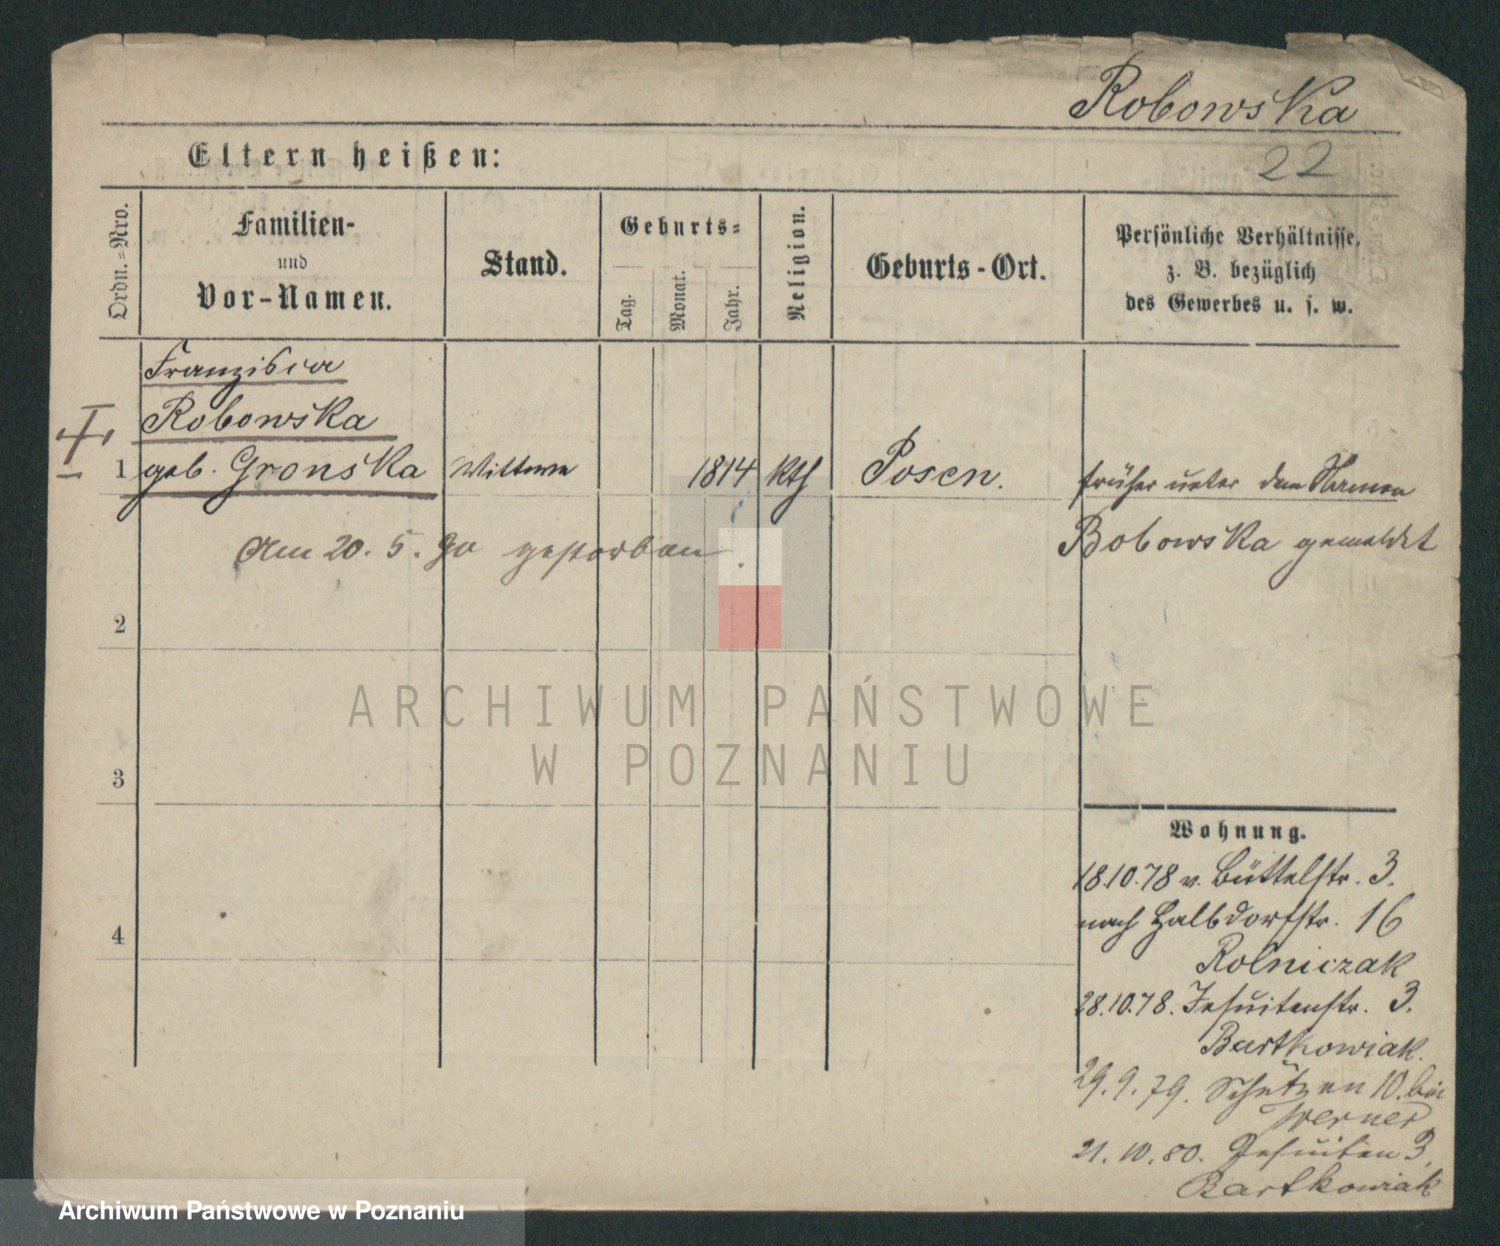 Robowska
22
Eltern heißen:
Ordn.=Nro.
Familien-
und
Vor-Namen.
Stand.
Geburts=
Tag.
Monat.
Jahr.
Religion.
Geburts-Ort.
Persönliche Verhältnisse,
z. B. bezüglich
des Gewerbes u. s. w.
Franzisca
Robowska
1 geb. Gronska Wittwe 1814 kth Posen. früher unter dem Namen
Bobowska gemeldet
Am 20. 5. 90 gestorben
2
ARCHIWUM PAŃSTWOWE
W POZNANIU
3
4
Wohnung.
18.10.78 v. Büttelstr. 3.
nach Halbdorfstr. 16
Rolniczak
28.10.78. Jesuitenstr. 3.
Bartkowiak.
29.9.79. Schützen 10. bei
Werner
21.10.80. Jesuiten 3
Bartkowiak
Archiwum Państwowe w Poznaniu